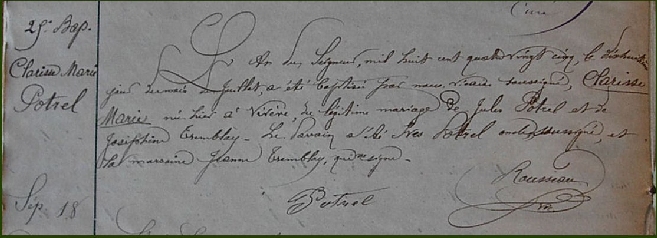 Curé
25e Bap.
Clarisse Marie
Potrel
L'An du Seigneur, mil huit cent quatre vingt cinq, le dixhuitième
jour de mois de juillet, a été baptisée par nous, vicaire soussigné, Clarisse
Marie née hier à Vitré, du légitime mariage de Jules Potrel et de
Joséphine Tremblay. Le parrain a été Yves Potrel oncle, soussigné, et
la marraine Jeanne Tremblay, qui signe.
Potrel
Rousseau
Sep. 18